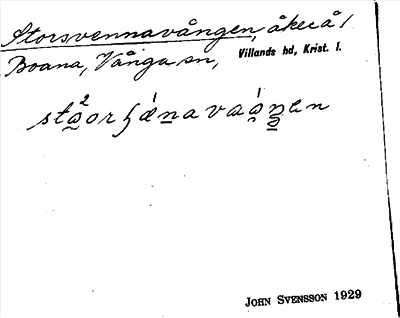 Storsvennavången, åker å /
Boana, Vånga sn, Villands hd, Krist. l.
JOHN SVENSSON 1929